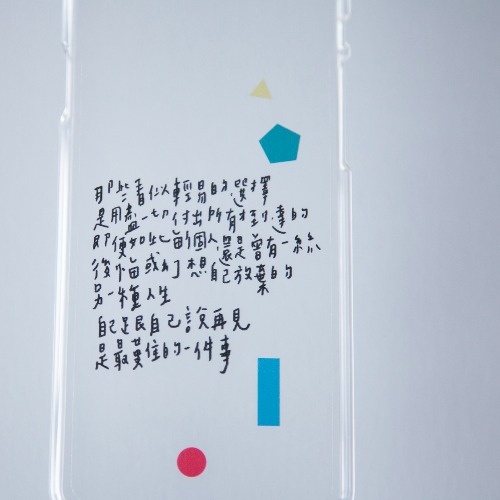 那些看似輕易的選擇
是用盡一切付出所有才到達的
即便如此每個人還是會有一絲
後悔或幻想自己放棄的
另一種人生
自己跟自己說再見
是最難的一件事